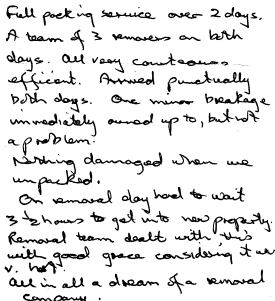 Full packing service over 2 days.
A team of 3 removers on both
days. All very courteous
efficient. Arrived punctually
both days. One minor breakage
immediately owned up to, but not
a problem.
Nothing damaged when we
unpacked.
On removal day had to wait
3½ hours to get into new property.
Removal team dealt with this
with good grace considering it was
v. hot.
All in all a dream of a removal
company.